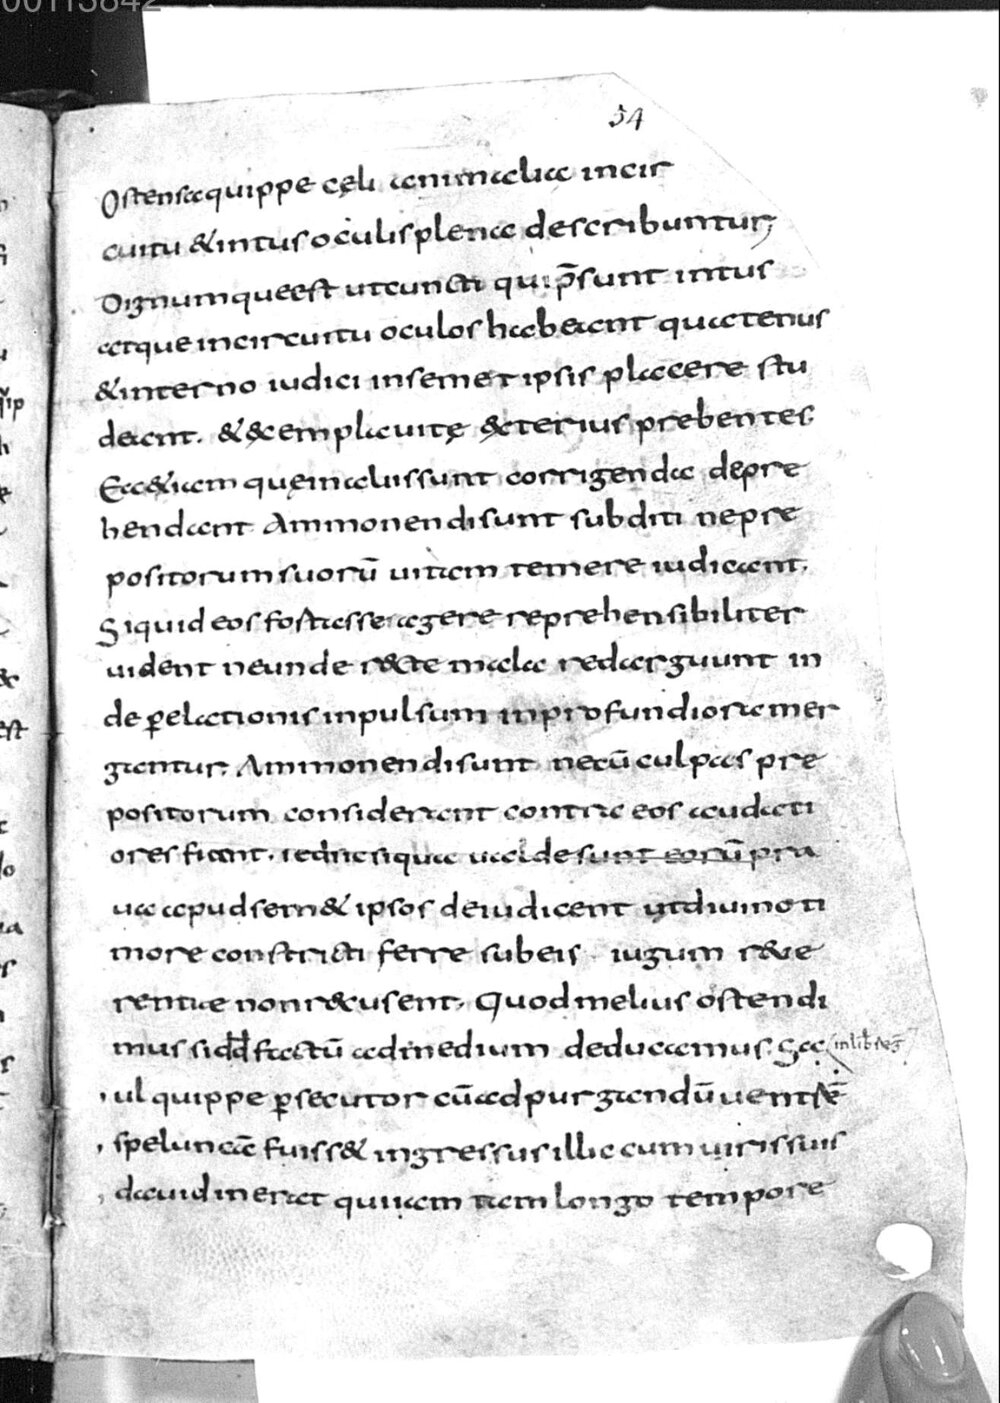 00113842
54
Ostensa quippe cęli animalia incir
cuitu & intus oculis plena describuntur;
Dignum que est ut cuncti qui p̄sunt intus
atque incircuitu oculos habeant quatenus
& interno iudici insemet ipsis placere stu
deant. & exempla uitę exterius prebentes.
Ea & iam quę in aliis sunt corrigenda depre
hendant Ammonendi sunt subditi ne pre
positorum suorū uitam temere iudicent.
Si quid eos fortasse agere reprehensibiliter
uident ne unde recte mala redarguunt in
de p elationis inpulsum in profundiora mer
gantur. Ammonendi sunt ne cū culpas pre
positorum considerant contra eos audati
ores fiant. sed sic si qua ualde sunt eorū pra
ua apud sem& ipsos deiudicent ut diuino ti
more constricti ferre sub eis iugum reue
rentiae non recusent. Quod melius ostendi
mus si dd factū ad medium deducamus. Sa
in lib reg
ul quippe p secutor cū ad purgandū uentrē
speluncā fuiss& ingressus illic cum uiris suis
dauid inerat qui iam tam longo tempore